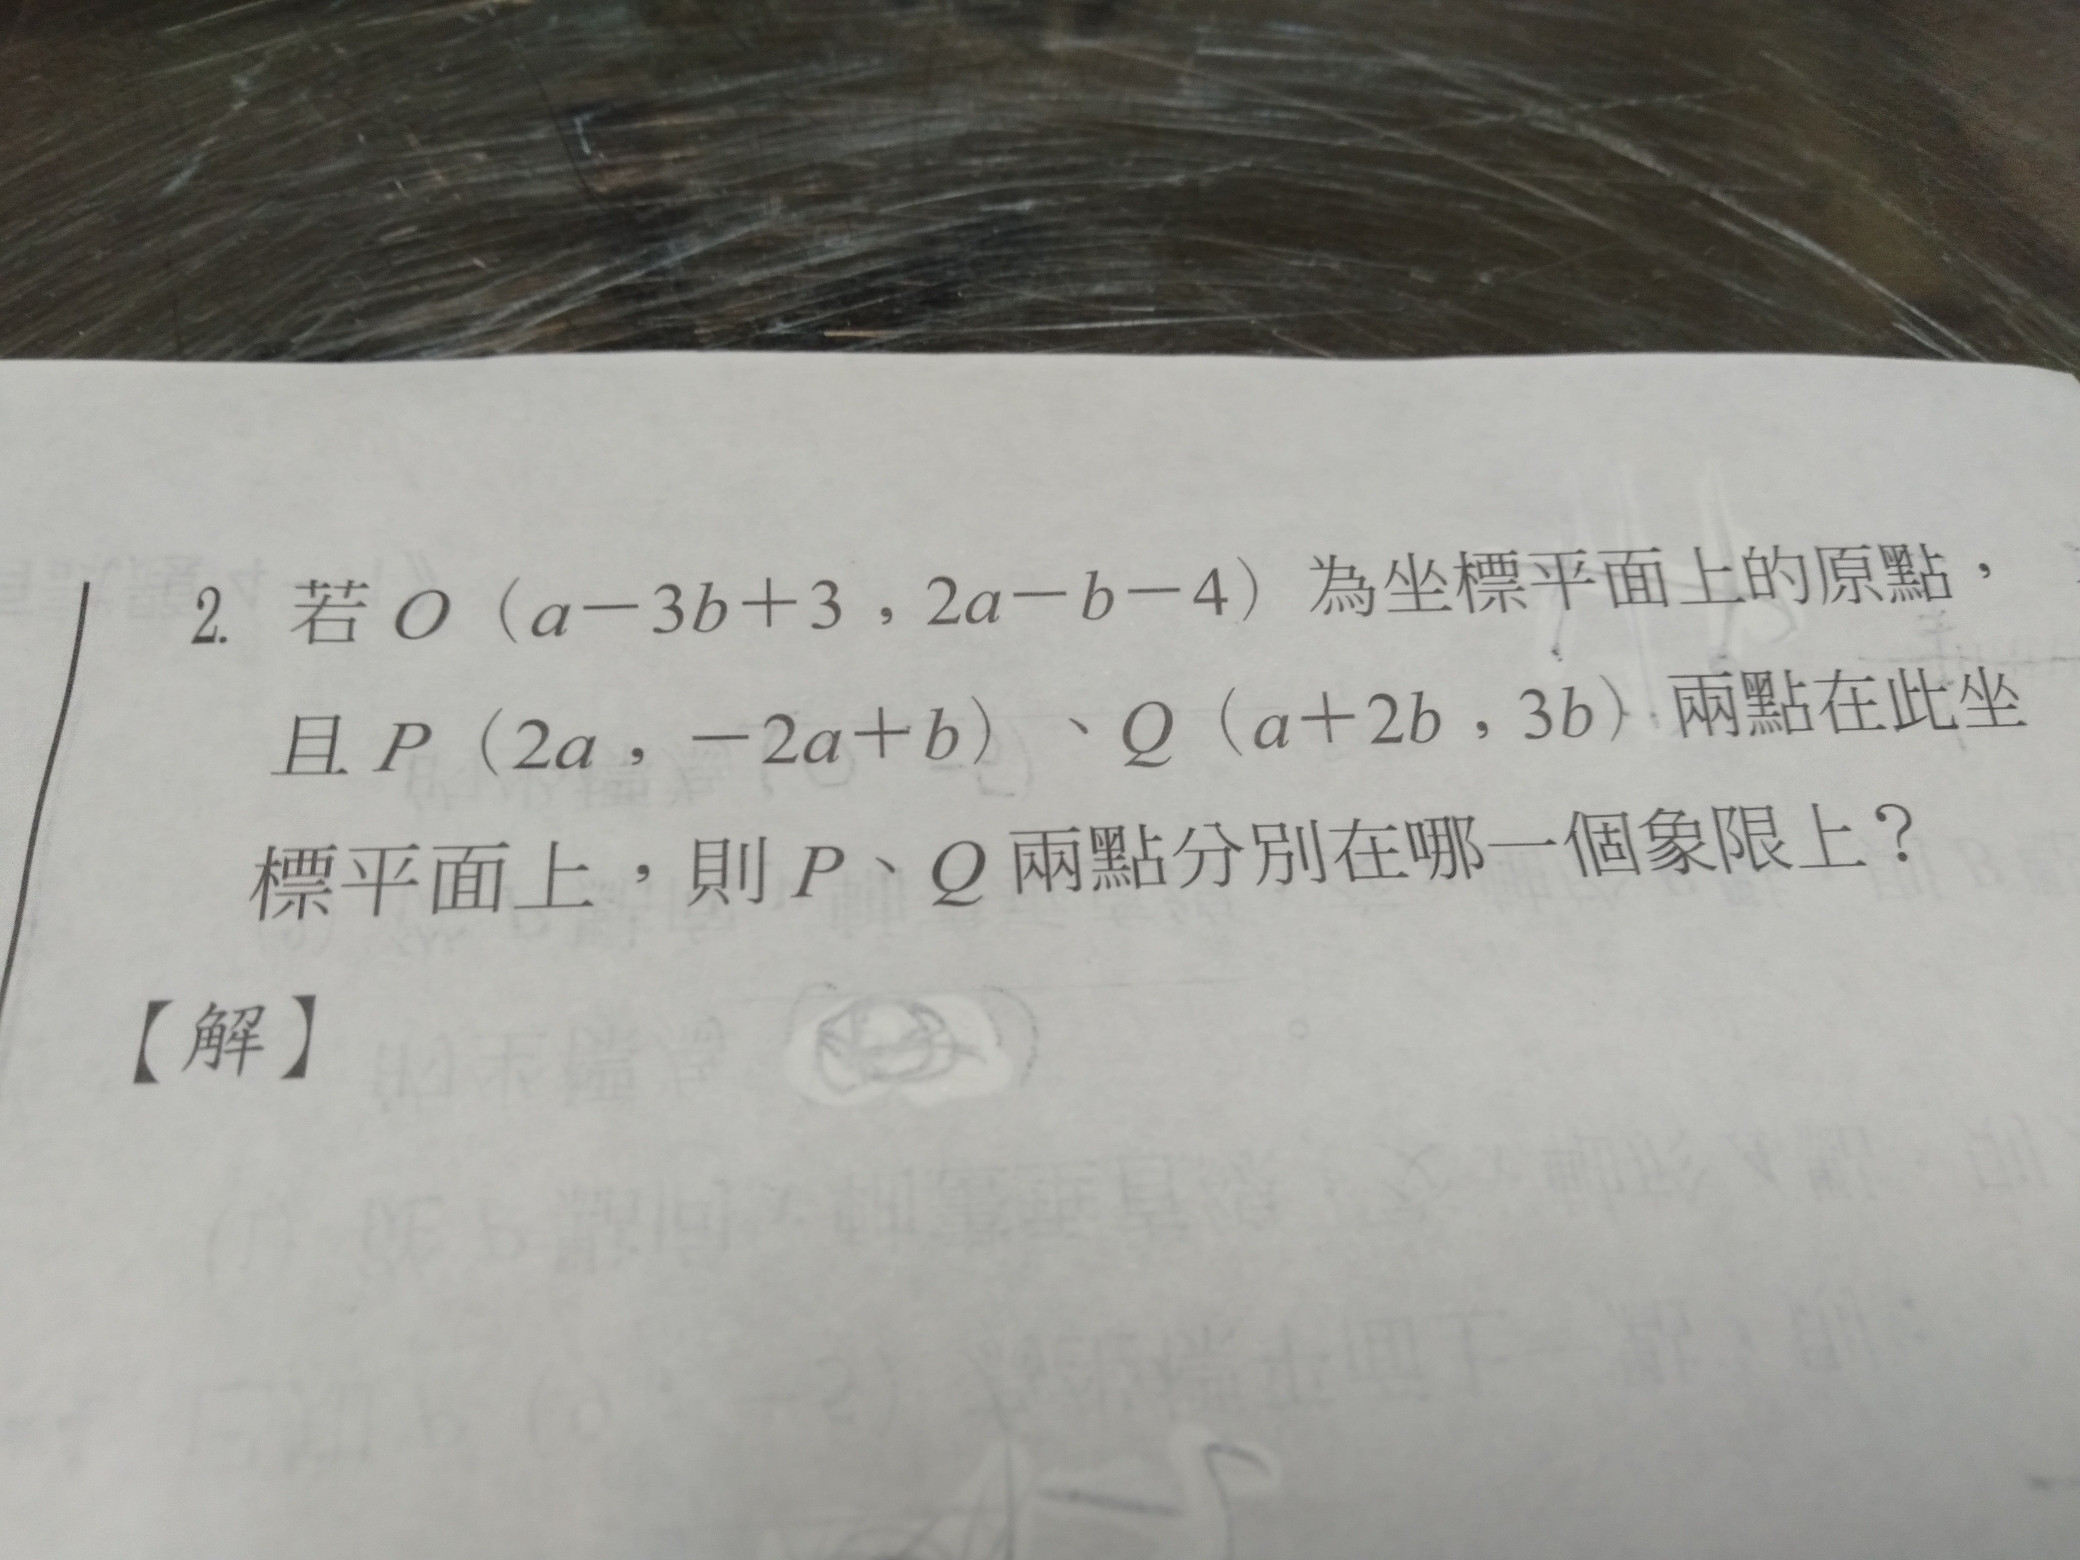 2. 若 O（a－3b＋3，2a－b－4）為坐標平面上的原點，
且 P（2a，－2a＋b）、Q（a＋2b，3b）兩點在此坐
標平面上，則 P、Q 兩點分別在哪一個象限上？
【解】